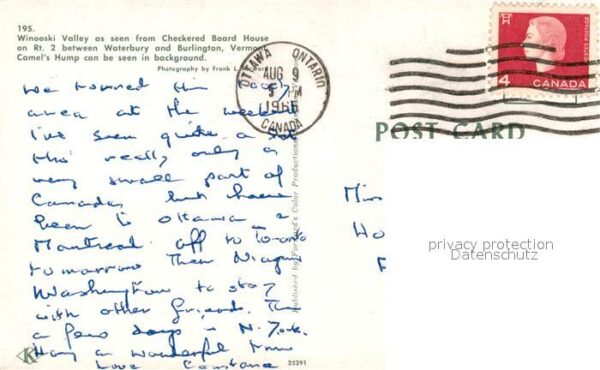 195.
Winooski Valley as seen from Checkered Board House
on Rt. 2 between Waterbury and Burlington, Vermont
Camel's Hump can be seen in background.
Photography by Frank L.
OTTAWA ONTARIO
AUG 9
PM
CANADA
POSTES POSTAGE
4 CANADA
POST CARD
We toured this lovely
area at the weekend
I've seen quite a lot
tho' really only a
very small part of
Canada, but have
been to Ottawa &
Montreal off to Toronto
tomorrow Then Niagra
Washington to stay
with other friends. Then
a few days in N. York.
Having a wonderful time
Love Constance
Miss
Ho
privacy protection
Datenschutz
Color Productions
K
25291